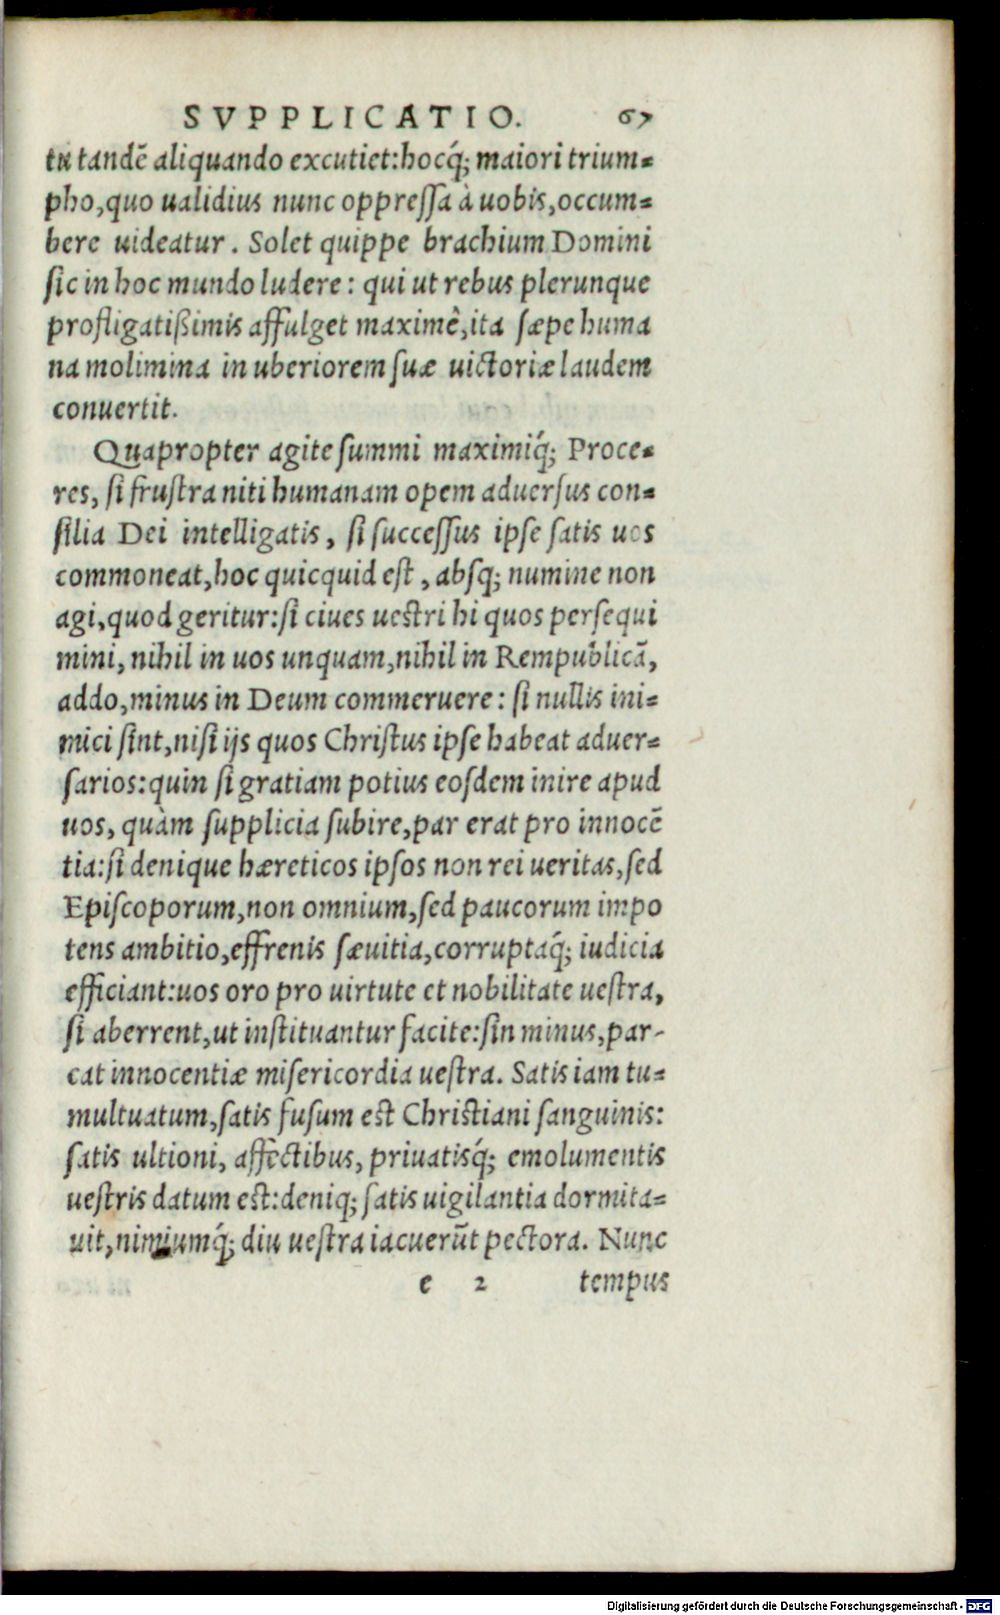 SVPPLICATIO. 67
tu tandē aliquando excutiet:hocq́; maiori trium=
pho,quo ualidius nunc oppreſſa à uobis,occum=
bere uideatur. Solet quippe brachium Domini
ſic in hoc mundo ludere: qui ut rebus plerunque
profligatißimis affulget maximè,ita ſæpe huma
na molimina in uberiorem ſuæ uictoriæ laudem
conuertit.
Quapropter agite ſummi maximiq́; Proce=
res, ſi fruſtra niti humanam opem aduerſus con=
ſilia Dei intelligatis, ſi ſucceſſus ipſe ſatis uos
commoneat,hoc quicquid eſt, abſq; numine non
agi,quod geritur:ſi ciues ueſtri hi quos perſequi
mini, nihil in uos unquam,nihil in Rempublicā,
addo,minus in Deum commeruere: ſi nullis ini=
mici ſint,niſi ijs quos Chriſtus ipſe habeat aduer=
ſarios:quin ſi gratiam potius eoſdem inire apud
uos, quàm ſupplicia ſubire,par erat pro innocē
tia:ſi denique hæreticos ipſos non rei ueritas,ſed
Epiſcoporum,non omnium,ſed paucorum impo
tens ambitio,effrenis ſæuitia,corruptaq́; iudicia
efficiant:uos oro pro uirtute et nobilitate ueſtra,
ſi aberrent,ut inſtituantur facite:ſin minus,par-
cat innocentiæ miſericordia ueſtra. Satis iam tu=
multuatum,ſatis fuſum eſt Chriſtiani ſanguinis:
ſatis ultioni, affectibus, priuatisq́; emolumentis
ueſtris datum eſt:deniq; ſatis uigilantia dormita=
uit,nimiumq́; diu ueſtra iacuerūt pectora. Nunc
e 2 tempus
Digitalisierung gefördert durch die Deutsche Forschungsgemeinschaft - DFG